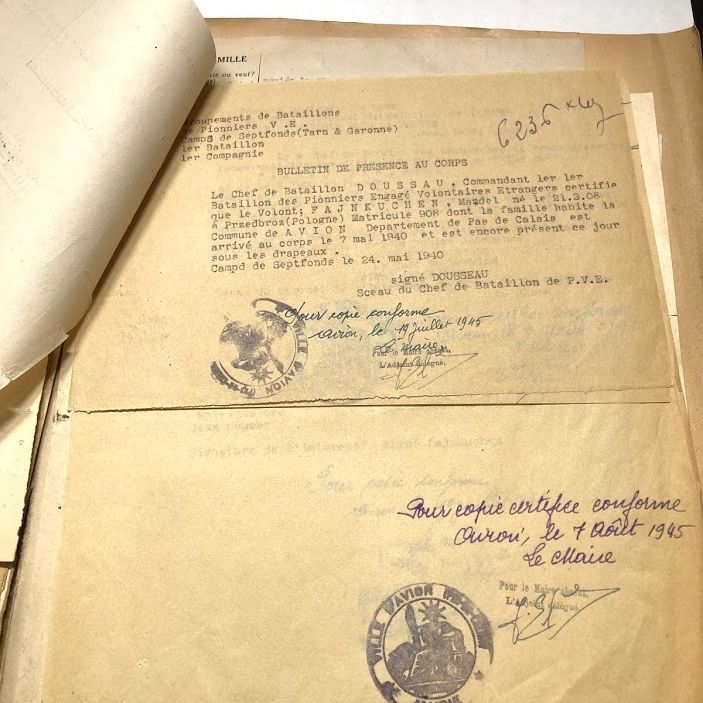 AMILLE
ié ou veuf?
Groupements de Bataillons
de Pionniers V.E.
Camps de Septfonds(Tarn & Garonne)
1er Bataillon
1er Compagnie
6236
BULLETIN DE PRESENCE AU CORPS
Le Chef de Bataillon D O U S S A U , Commandant 1er 1er
Bataillon des Pionniers Engagé Volontaires Etrangers certifie
que le Volont; F A J N K U C H E N , Mandel né le 21.3.08 ,
à Przedbroz(Pologne) Matricule 908 dont la famille habite la
Commune de A V I O N Departement de Pas de Calais est
arrivé au corps le 7 mai 1940 et est encore présent ce jour
sous les drapeaux .
Campd de Septfonds le 24. mai 1940
signé DOUSSEAU
Sceau du Chef de Bataillon de P.V.E.
Pour copie conforme
Avion, le 19 juillet 1945
Le maire,
Pour le Maire absent,
L'Adjoint délégué,
VILLE D'AVION
Signature de l'intéressé
Pour copie conforme
Pour copie certifiée conforme
Avion, le 7 Août 1945
Le Maire
Pour le Maire absent,
L'Adjoint délégué,
VILLE D'AVION